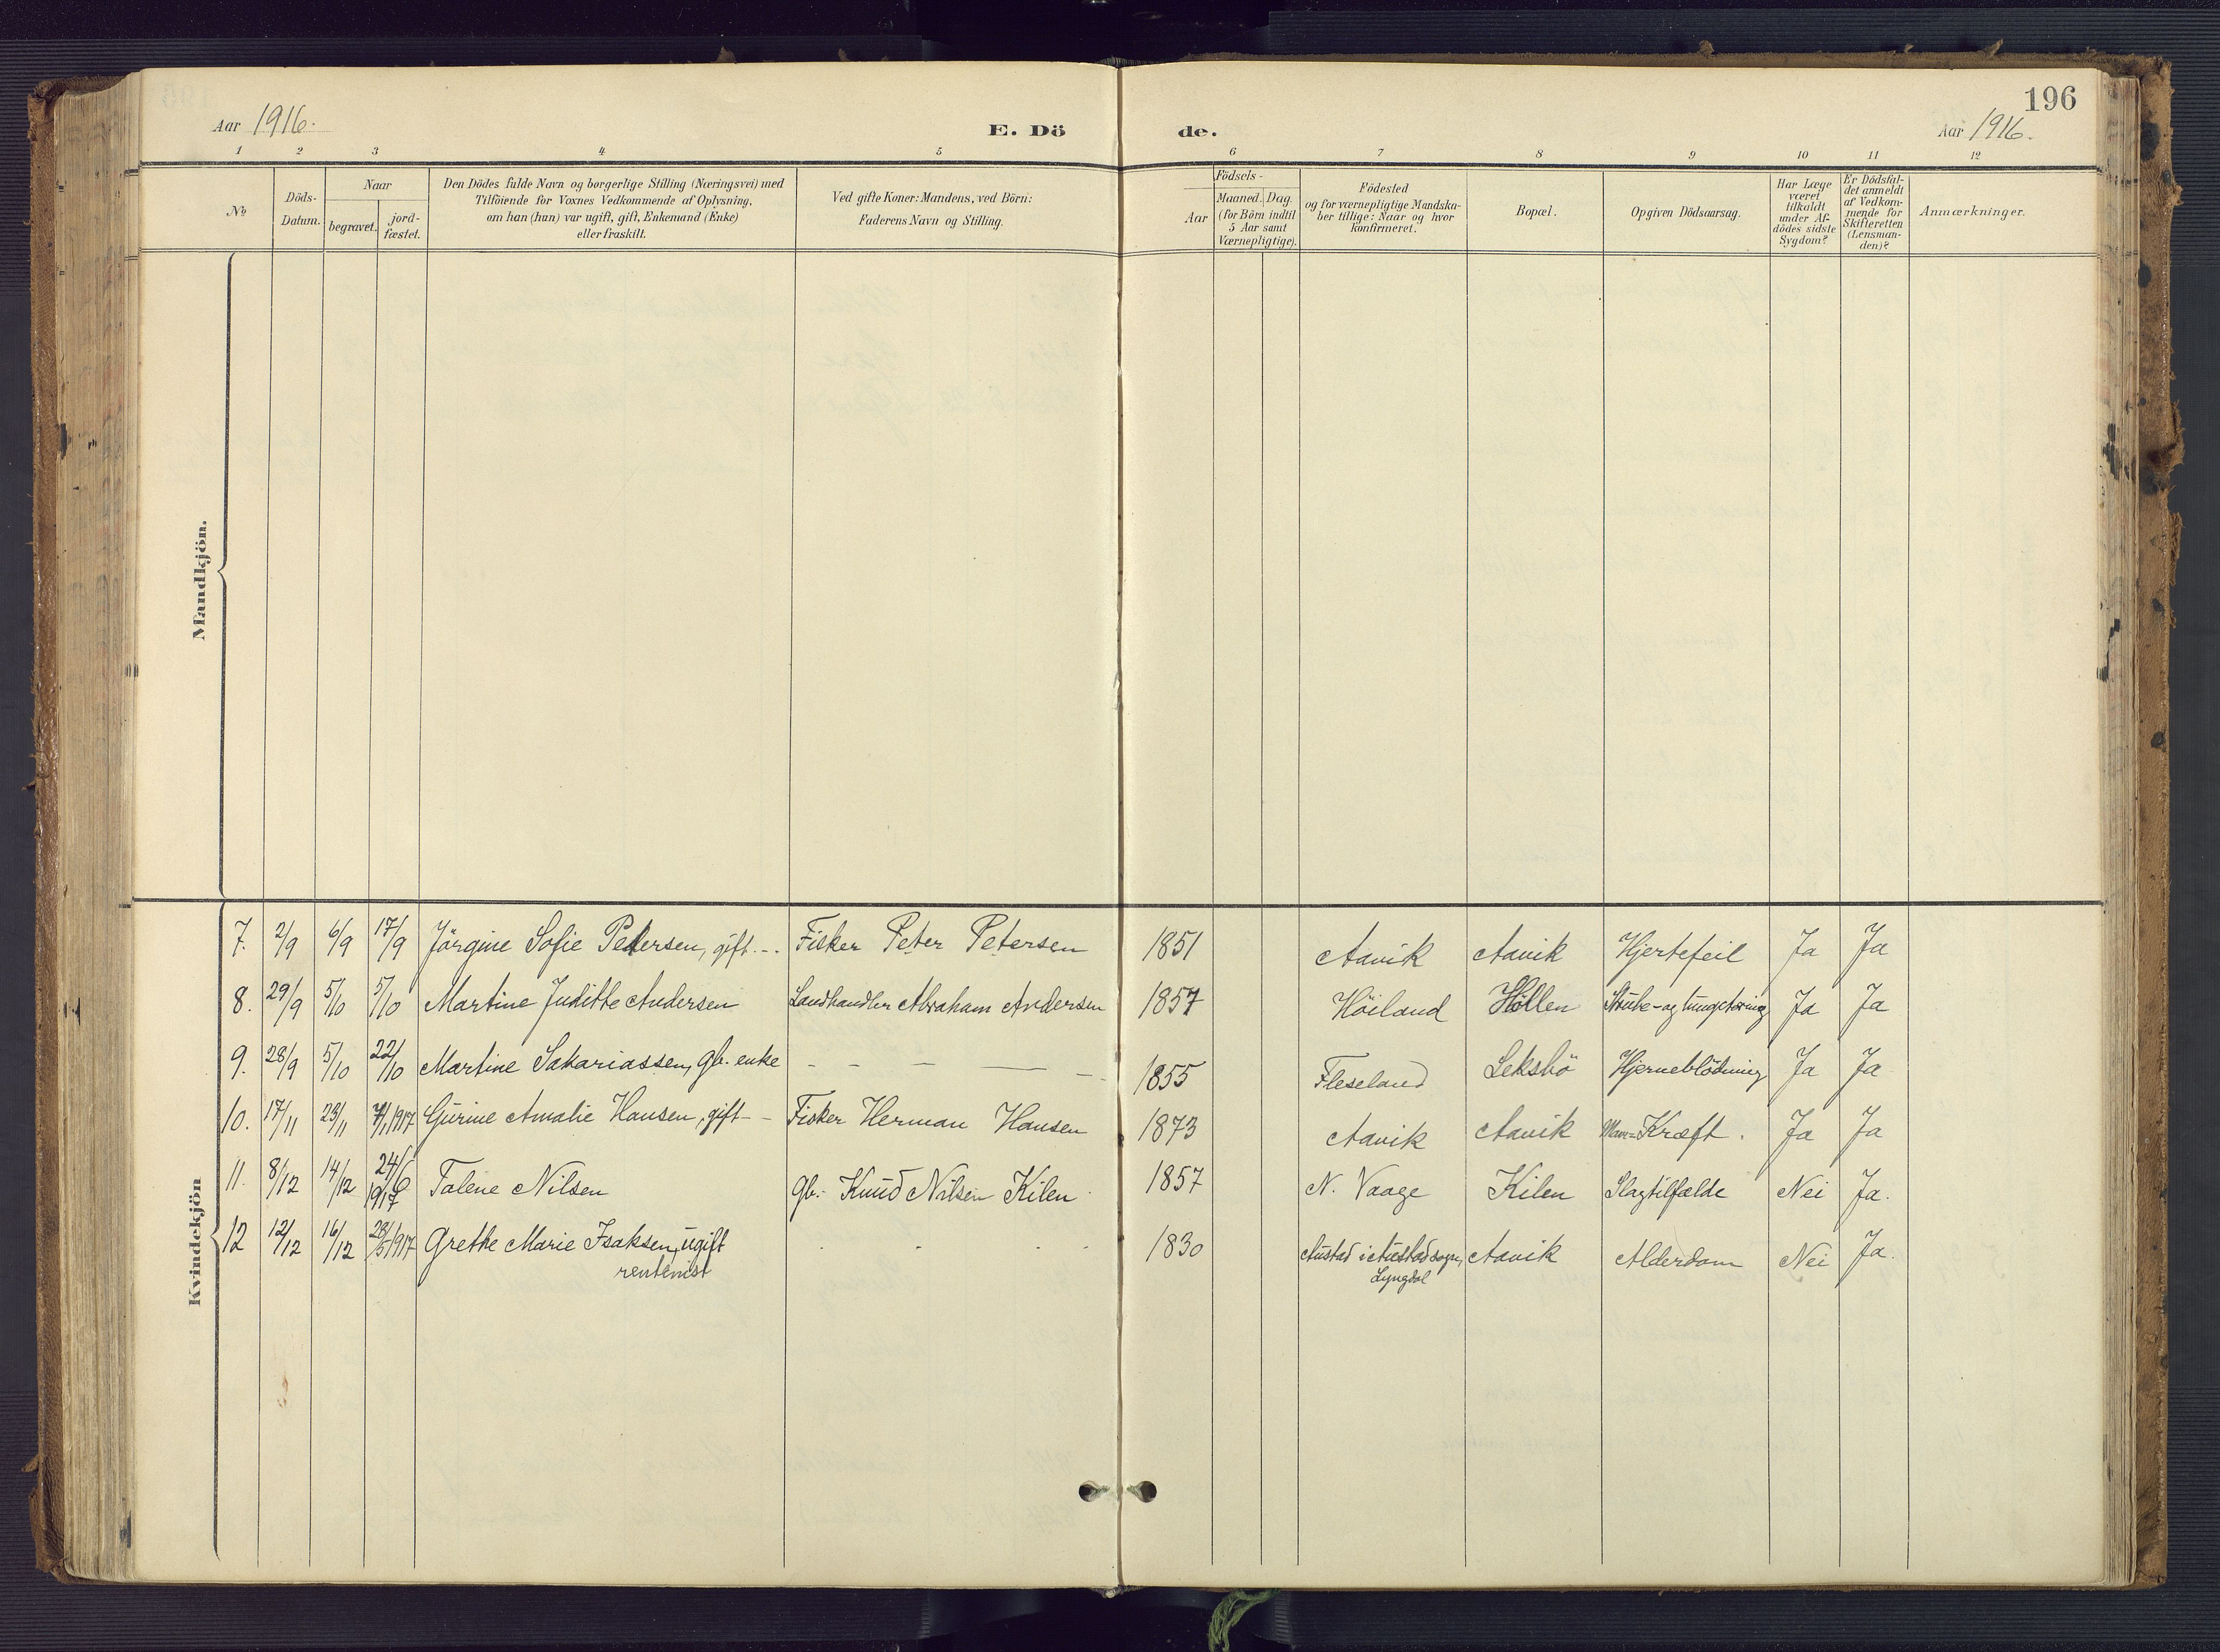 196
Aar 1916.
E. Dö
de.
Aar 1916.
1 2 3 4 5 6 7 8 9 10 11 12
No
Döds-
Datum.
Naar
begravet.
jord-
fæstet.
Den Dödes fulde Navn og borgerlige Stilling (Næringsvei) med
Tilföiende for Voxnes Vedkommende af Oplysning,
om han (hun) var ugift, gift, Enkemand (Enke)
eller fraskilt.
Ved gifte Koner: Mandens, ved Börn:
Faderens Navn og Stilling.
Födsels-
Aar
Maaned. Dag.
(for Börn indtil
5 Aar samt
Værnepligtige).
Födested
og for værnepligtige Mandska-
ber tillige: Naar og hvor
konfirmeret.
Bopæl.
Opgiven Dödsaarsag.
Har Læge
været
tilkaldt
under Af-
dödes sidste
Sygdom?
Er Dödsfal-
det anmeldt
af Vedkom-
mende for
Skifteretten
(Lensman-
den)?
Anmærkninger.
Mandkjön.
Kvindekjön
7. 2/9 6/9 17/9 Jörgine Sofie Pedersen, gift. - - Fisker Peter Petersen 1851 Aavik Aavik Hjertefeil Ja Ja
8. 29/9 5/10 5/10 Martine Juditte Andersen Landhandler Abraham Andersen 1857 Höiland Höllen Strube- og lungetæring Ja Ja
9. 28/9 5/10 22/10 Martine Sakariassen, gb. enke - - - - - 1855 Fleseland Seksbö Hjerneblödning Ja Ja
10. 17/11 23/11 7/1 1917 Gurine Amalie Hansen, gift - - Fisker Herman Hansen 1873 Aavik Aavik Mave=Kræft. Ja Ja
11. 8/12 14/12 24/6 1917 Talene Nilsen gb. Knud Nilsen Kilen 1857 N. Vaage Kilen Slagtilfælde Nei Ja.
12 12/12 16/12 28/5 1917 Grethe Marie Isaksen, ugift 1830 Austad i Austad sogn, Aavik Alderdom Nei Ja.
rentenist
Lyngdal